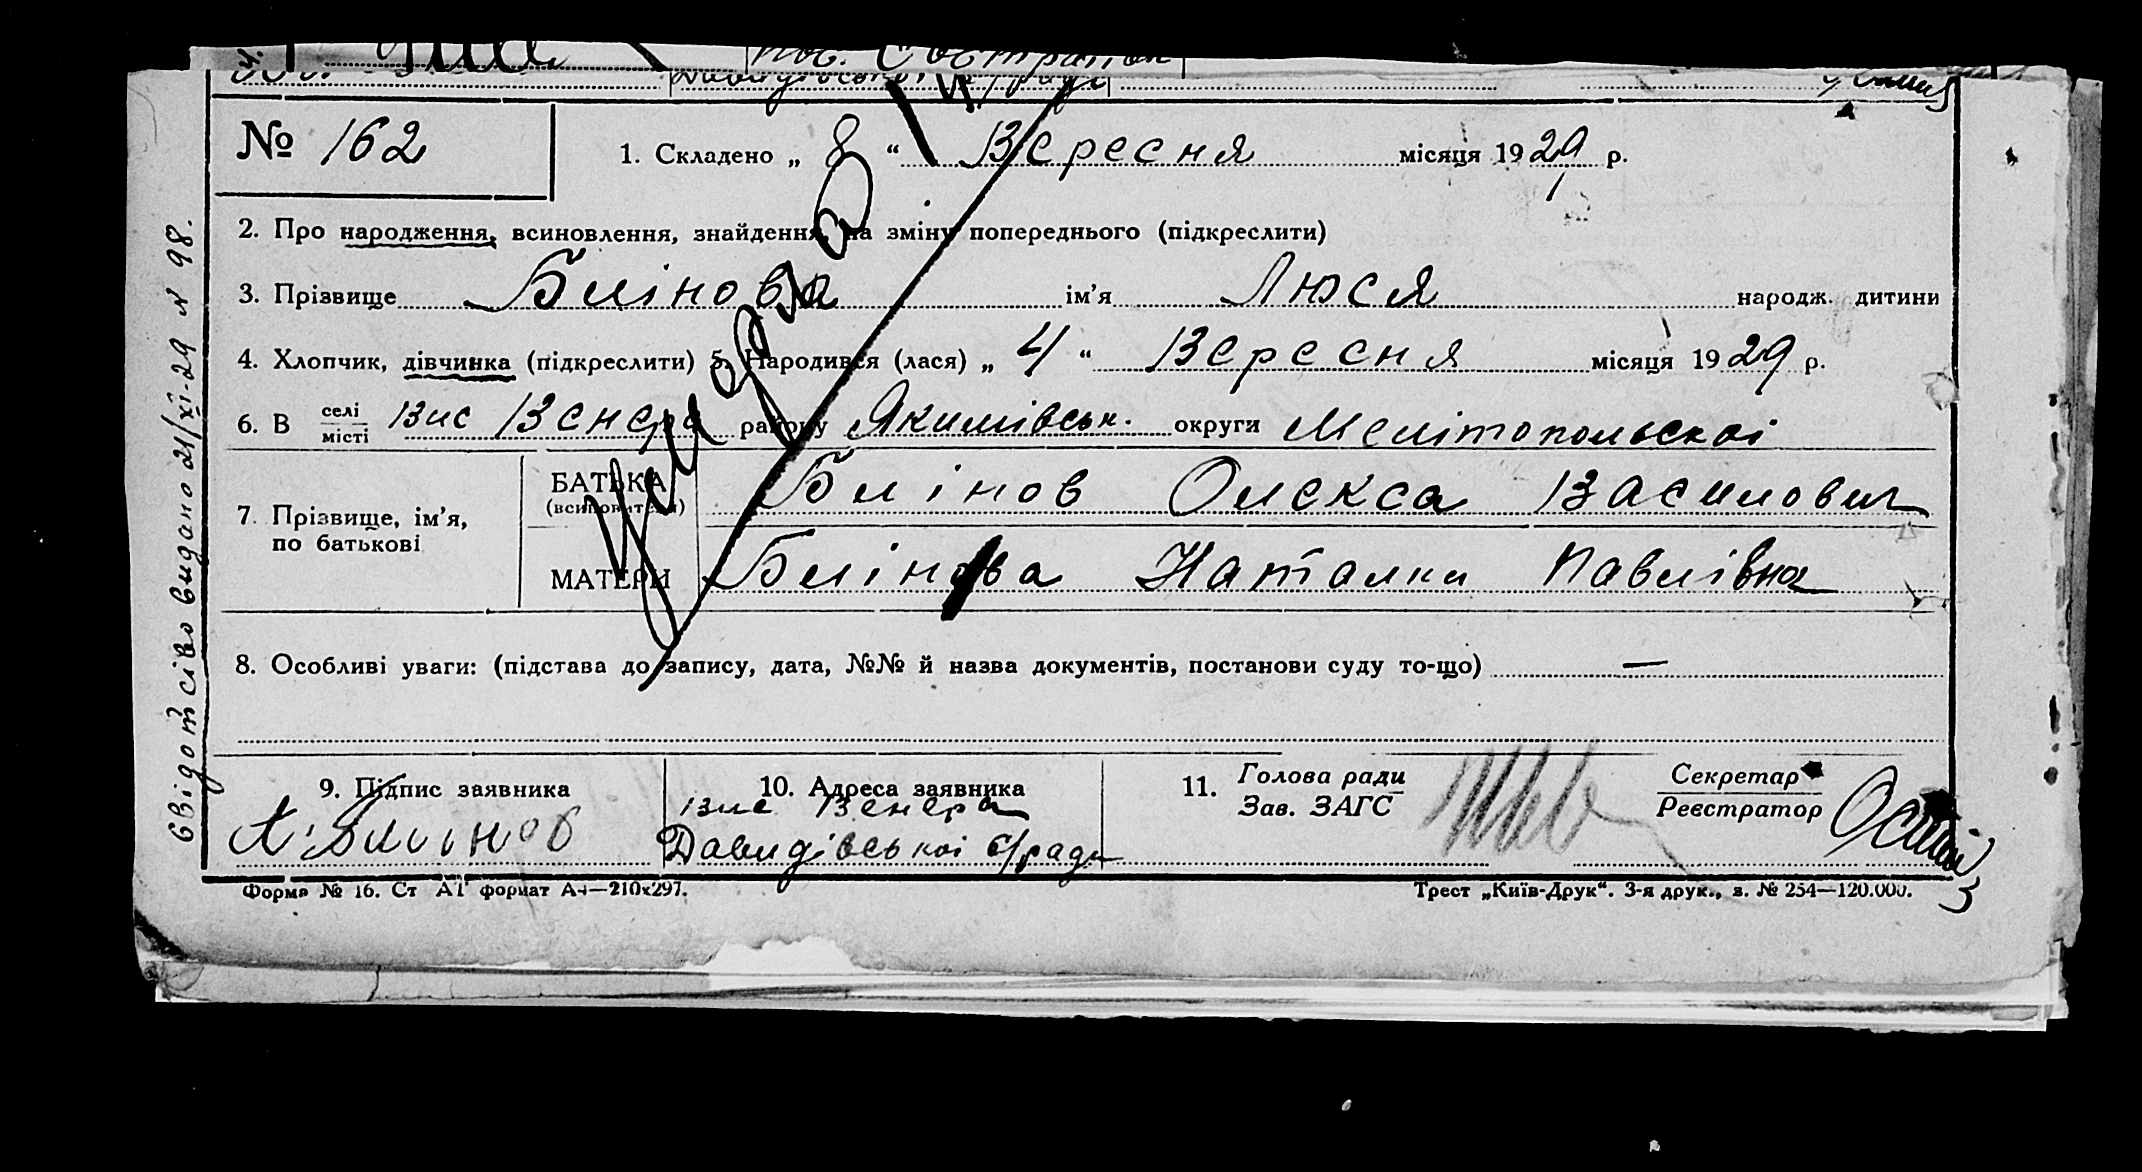 № 162
1. Складено „ 8 “ Вересня місяця 1929 р.
2. Про народження, всиновлення, знайдення, на зміну попереднього (підкреслити)
3. Прізвище Блінова ім’я Люся народж. дитини
4. Хлопчик, дівчинка (підкреслити) 5. Народився (лася) „ 4 “ Вересня місяця 1929 р.
6. В селі місті вис Венера району Якимівськ. округи Мелітопольскоі
7. Прізвище, ім’я, по батькові
БАТЬКА (всиновителя) Блінов Олекса Василович
МАТЕРИ Блінова Наталки Павлівна
Умерла
8. Особливі уваги: (підстава до запису, дата, №№ й назва документів, постанови суду то-що) —
9. Підпис заявника
А. Блинов
10. Адреса заявника
вис Венера
Давидівськоі с/ради
11. Голова ради
Зав. ЗАГС
Секретар
Реєстратор
Форма № 16. Ст АТ формат А4—210х297.
Трест „Київ-Друк“. 3-я друк., з. № 254—120.000.
Свідотсіво видано 21/XI-29 N 98.